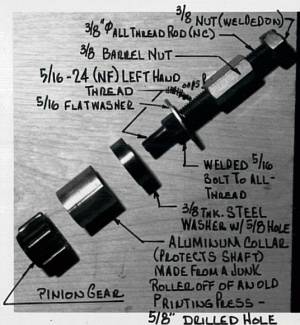 3/8 NUT (WELDED ON)
3/8" Φ ALL THREAD ROD (NC)
3/8 BARREL NUT
5/16 - 24 (NF) LEFT HAND
THREAD
OOPS
5/16 FLATWASHER
WELDED 5/16
BOLT TO ALL-
THREAD
3/8 THK. STEEL
WASHER W/ 5/8 HOLE
ALUMINUM COLLAR
(PROTECTS SHAFT)
MADE FROM A JUNK
ROLLER OFF OF AN OLD
PRINTING PRESS -
5/8" DRILLED HOLE
PINION GEAR